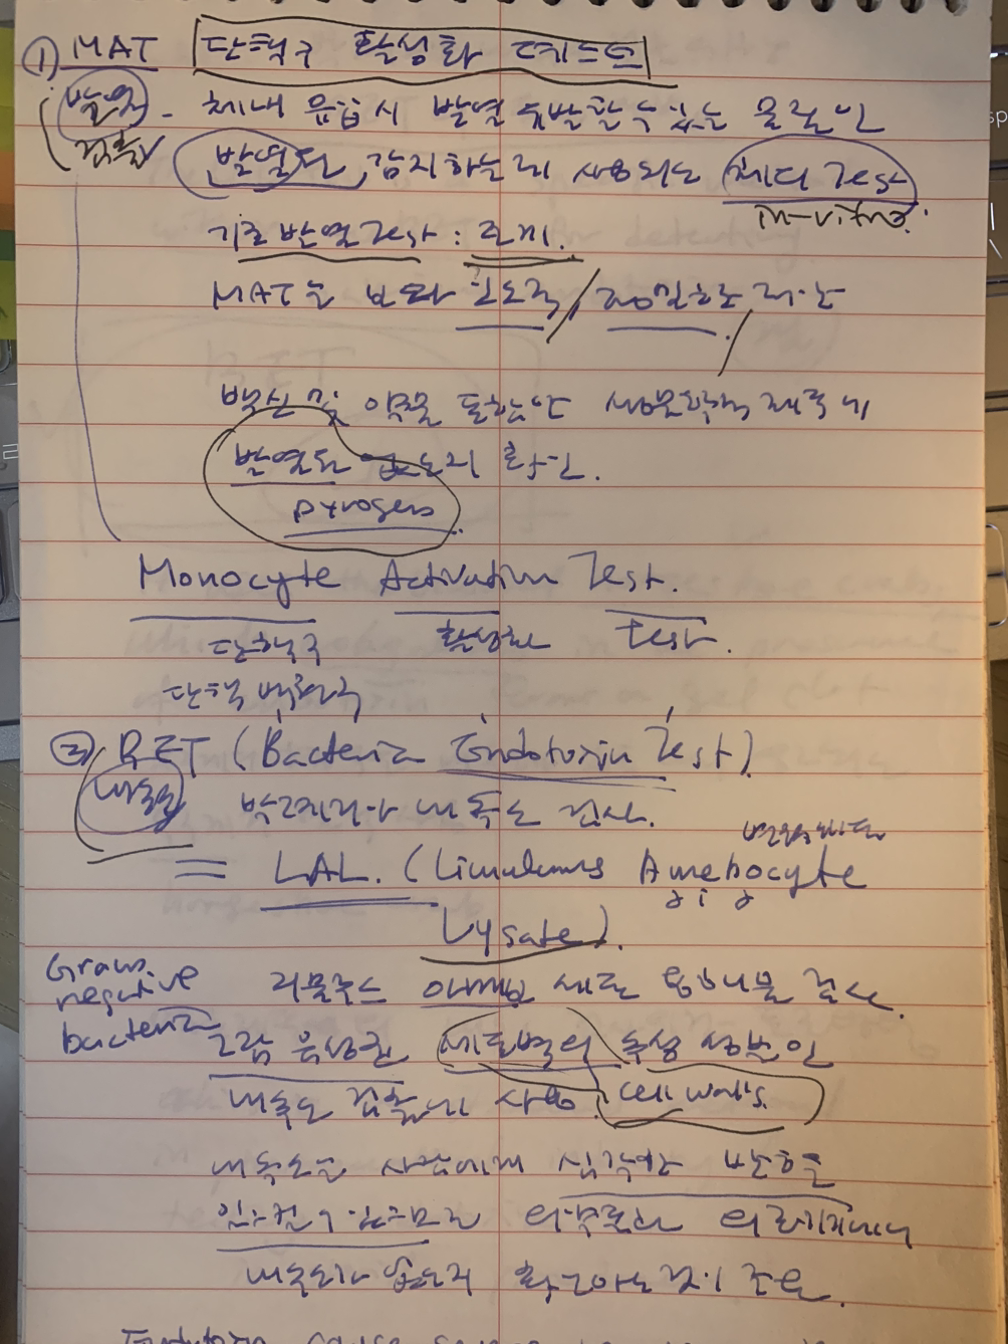 ① MAT 단핵구 활성화 테스트
발열 - 체내 유입시 발열 유발할 수 있는 물질인
검출 발열원 감지하는데 사용되는 체외 Test
in-vitro.
기존 발열 Test : 토끼.
MAT는 보다 / 대안
백신 및 약물 생물학적 제제에
발열원 없는지 확인.
pyrogens
Monocyte Activation Test.
단핵구 활성화 test.
단핵 백혈구
② BET (Bacteria Endotoxin Test)
내독소 박테리아 내독소 검사.
= LAL. (Limulus Amebocyte
Lysate).
Gram
negative
bacteria
리물루스 아메보 세포 용해물 검사.
그람 음성균 세포벽의 구성 성분인
내독소 검출에 사용 cell walls.
내독소는 사람에게 심각한 반응을
일으킬 수 있으므로 의약품과 의료기기에
내독소가 없는지 확인하는 것이 중요.